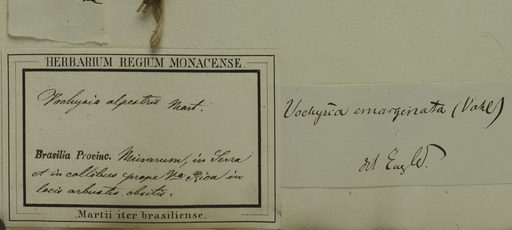 HERBARIUM REGIUM MONACENSE.
Vochysia alpestris Mart.
Brasilia Provinc. Minarum, in Serra
et in collibus prope Va Rica in
locis arbustis obsitis.
Martii iter brasiliense.
Vochysia emarginata (Vahl)
det Engl.